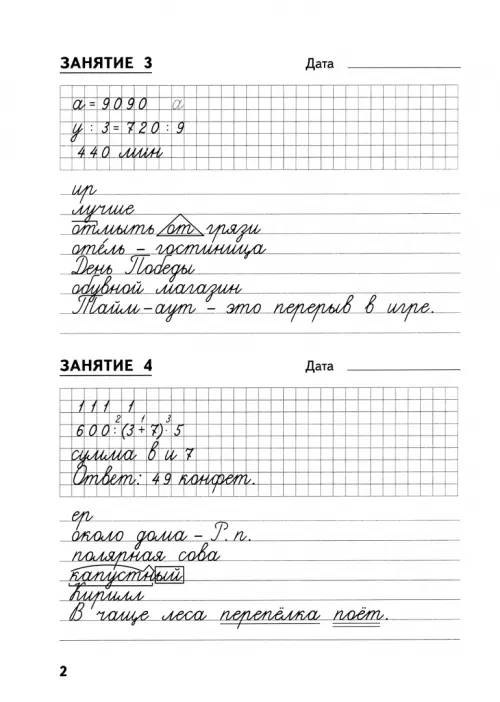 ЗАНЯТИЕ 3 Дата
а = 9090 а
у : 3 = 720 : 9
440 мин
ир
лучше
отмыть от грязи
отéль – гостиница
День Победы
обувной магазин
Тайм-аут – это перерыв в игре.
ЗАНЯТИЕ 4 Дата
1 1 1 1
2 1 3
600 : (3 + 7) · 5
сумма в и 7
Ответ: 49 конфет.
ер
около дома – Р. п.
полярная сова
капустный
Кирилл
В чаще леса перепёлка поёт.
2